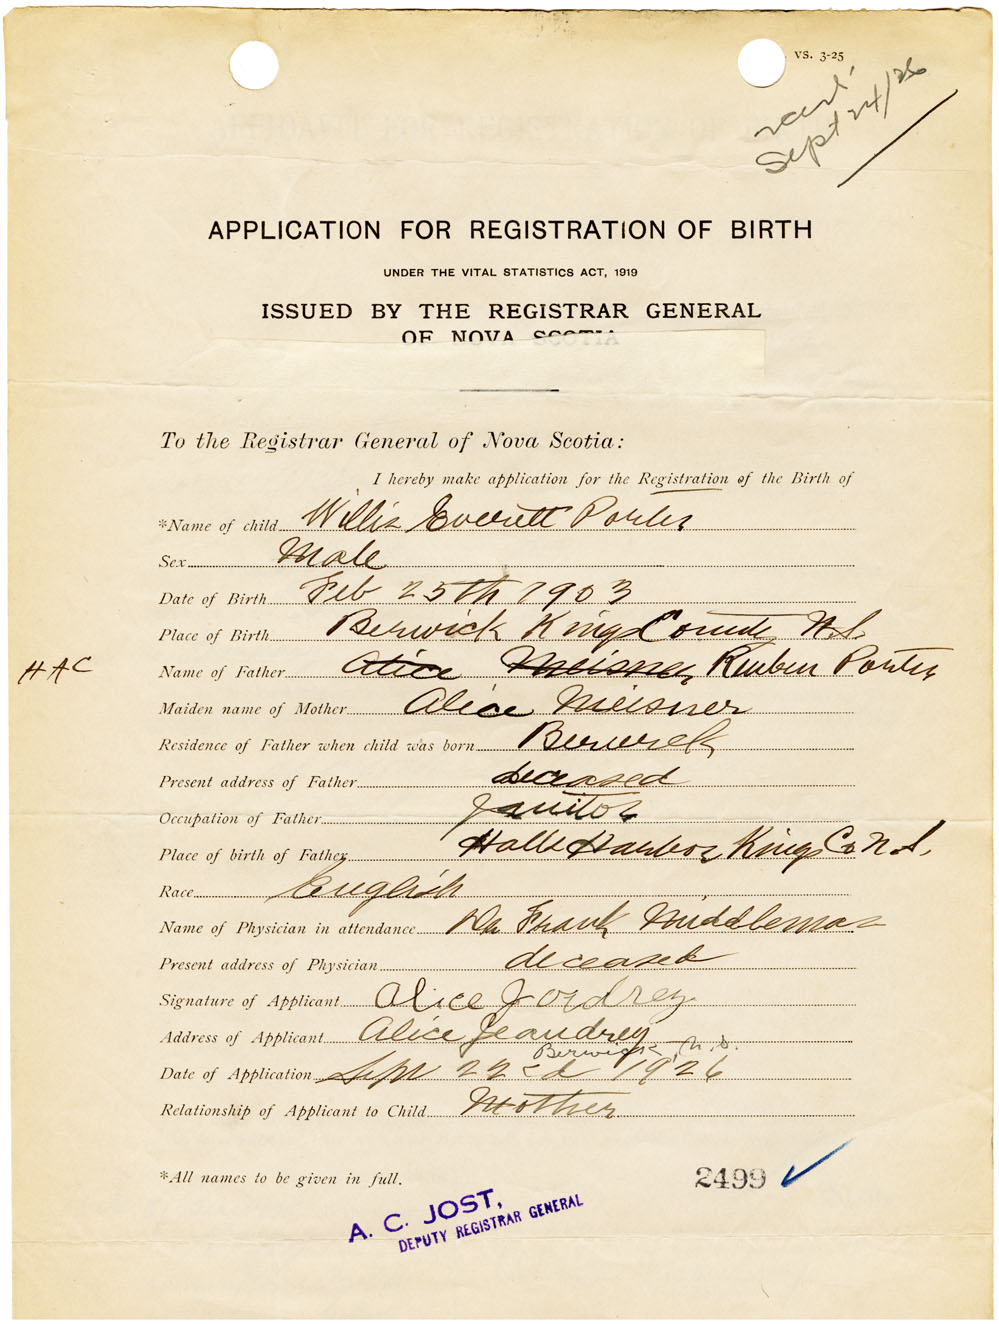 VS. 3-25
Sept 24/26
APPLICATION FOR REGISTRATION OF BIRTH
UNDER THE VITAL STATISTICS ACT, 1919
ISSUED BY THE REGISTRAR GENERAL
OF NOVA SCOTIA
To the Registrar General of Nova Scotia:
I hereby make application for the Registration of the Birth of
*Name of child Willis Everett Porter
Sex Male
Date of Birth Feb 25th 1903
Place of Birth Berwick Kings County N.S.
HAC
Name of Father Alice Meisner Reuben Porter
Maiden name of Mother Alice Meisner
Residence of Father when child was born Berwick
Present address of Father deceased
Occupation of Father Janitor
Place of birth of Father Halls Harbor Kings Co N.S.
Race English
Name of Physician in attendance Dr Frank Middlemas
Present address of Physician deceased
Signature of Applicant Alice Jordrey
Address of Applicant Alice Jeaudrey
Berwick, N.S.
Date of Application Sept 22nd 1926
Relationship of Applicant to Child Mother
*All names to be given in full.
2499
A. C. JOST,
DEPUTY REGISTRAR GENERAL